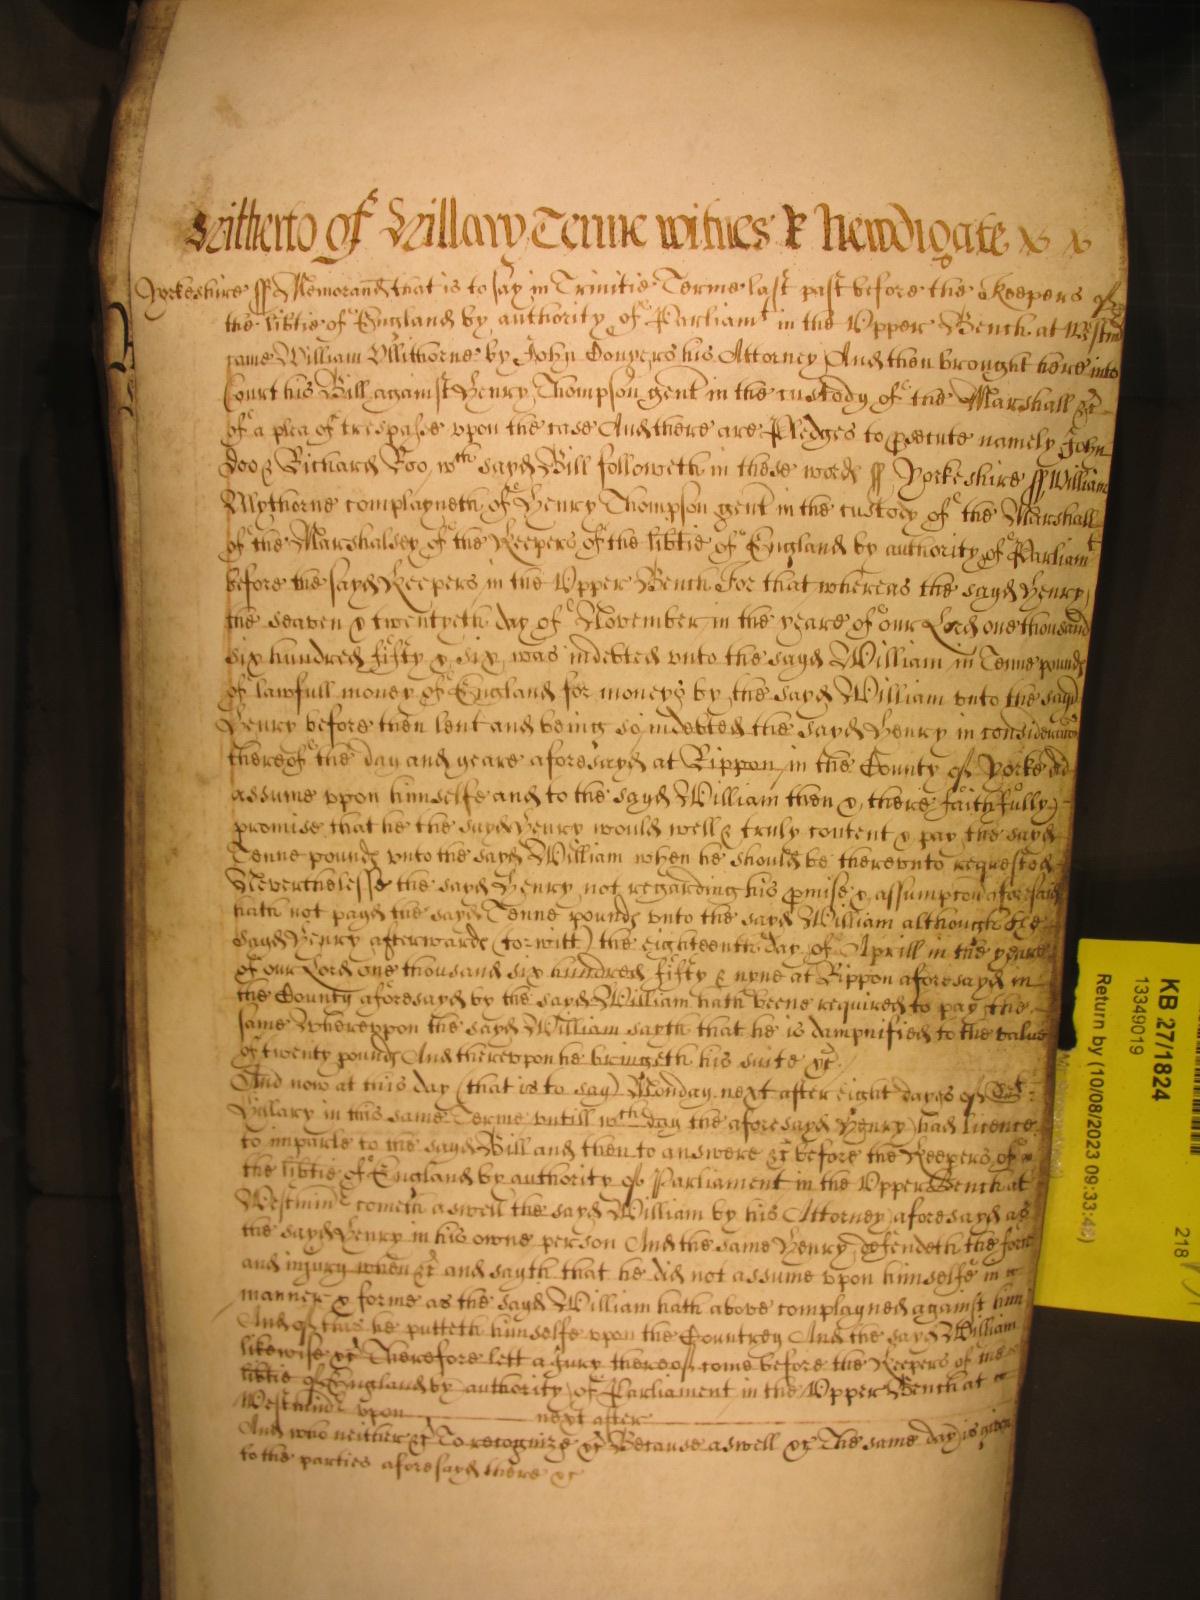 Witherto of Hillary Terme witnes R Newdigate
Yorkeshire ss Memorand that is to say in Trinitie Terme last past before the Keepers of
the libtie of England by authority of Parliamt in the Upper Bench at Westmr
came William Ullithorne by John Conyers his Attorney And then brought here into
Court his Bill against Henry Thompson gent in the custody of the Marshall &c
of a plea of trespasse upon the case And there are Pledges to psecute namely John
Doo & Richard Roo wch sayd Bill followeth in these words ss Yorkeshire ss William
Ullythorne complayneth of Henry Thompson gent in the custody of the Marshall
of the Marshalsey of the Keepers of the libtie of England by authority of Parliamt
before the sayd Keepers in the Upper Bench For that whereas the sayd Henry
the seaven & twentyeth day of November in the yeare of our Lord one thousand
six hundred fifty & six was indebted unto the sayd William in Tenne pounds
of lawfull money of England for moneys by the sayd William unto the sayd
Henry before then lent and being so indebted the sayd Henry in consideracon
thereof the day and yeare aforesayd at Rippon in the County of Yorke did
assume upon himselfe and to the sayd William then & there faithfully
promise that he the sayd Henry would well & truly content & pay the sayd
Tenne pounds unto the sayd William when he should be thereunto requested
Neverthelesse the sayd Henry not regarding his pmise & assumpcon aforesaid
hath not payd the sayd Tenne pounds unto the sayd William although the
sayd Henry afterwards (to witt) the eighteenth day of Aprill in the yeare
of our Lord one thousand six hundred fifty & nyne at Rippon aforesayd in
the County aforesayd by the sayd William hath beene required to pay the
same Whereupon the sayd William sayth that he is dampnified to the value
of twenty pounds And thereupon he bringeth his suite &c
And now at this day (that is to say) Monday next after eight dayes of St
Hillary in this same Terme untill wch day the aforesayd Henry had licence
to imparle to the sayd Bill and then to answere &c before the Keepers of
the libtie of England by authority of Parliament in the Upper Bench at
Westmin cometh aswell the sayd William by his Attorney aforesayd as
the sayd Henry in his owne person And the same Henry defendeth the force
and injury when &c and sayth that he did not assume upon himselfe in
manner & forme as the sayd William hath above complayned against him
And of this he putteth himselfe upon the Countrey And the sayd William
likewise &c Therefore lett a Jury thereof come before the Keepers of the
libtie of England by authority of Parliament in the Upper Bench at
Westmin upon next after
And who neither &c To recognize &c Because aswell &c The same day is given
to the parties aforesayd there &c
KB 27/1824
13349019
Return by (10/08/2023 09:33:48)
218